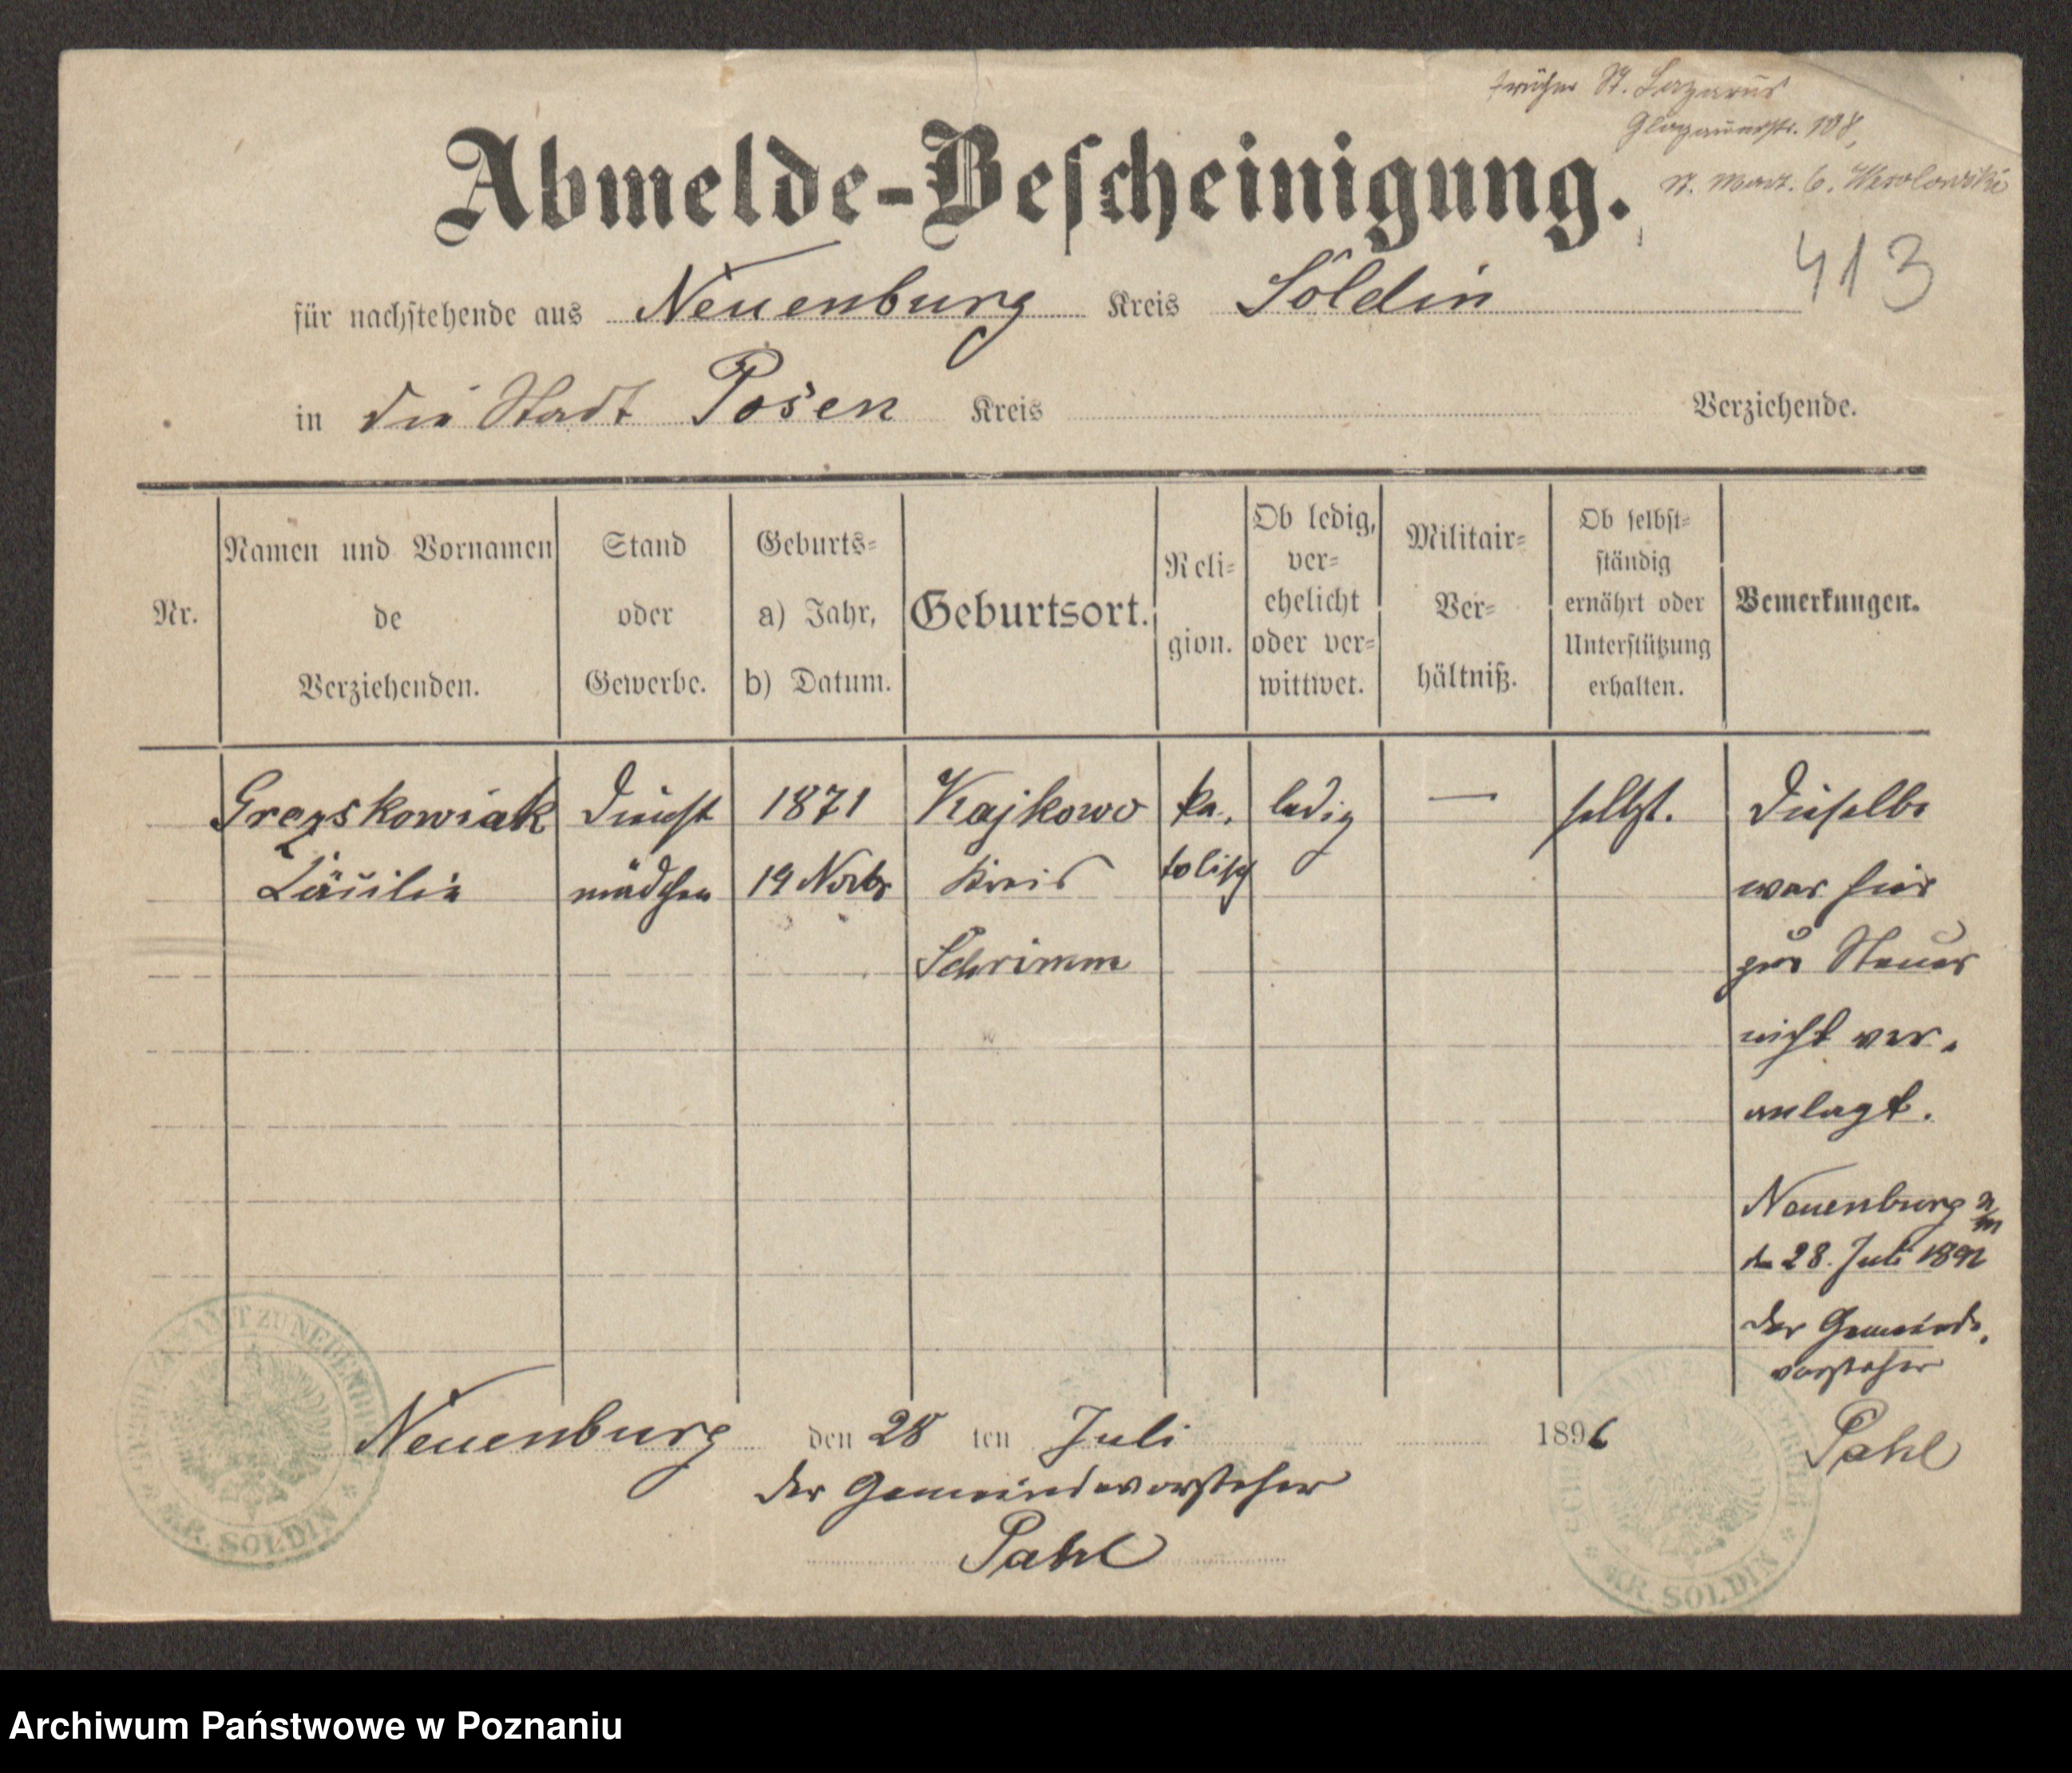 früher St. Lazarus
Glogauerstr. 108,
St. Mart. 6. Wesolowski
Abmelde-Bescheinigung.
413
für nachstehende aus Neuenburg Kreis Soldin
in die Stadt Posen Kreis Verziehende.
Nr.
Namen und Vornamen
de
Verziehenden.
Stand
oder
Gewerbe.
Geburts-
a) Jahr,
b) Datum.
Geburtsort.
Reli-
gion.
Ob ledig,
ver-
ehelicht
oder ver-
wittwet.
Militair-
Ver-
hältniß.
Ob selbst-
ständig
ernährt oder
Unterstützung
erhalten.
Bemerkungen.
Grezskowiak
Dienst
mädchen
1871
19 Novbr
Kajkowo
Kreis
Schrimm
ka-
tolisch
ledig
—
selbst.
Dieselbe
war hier
zur Steuer
nicht ver-
anlagt.
Neuenburg N/M
d. 28. Juli
der Gemeinde-
vorsteher
Pahl
Neuenburg den 28 ten Juli 1896
der Gemeindevorsteher
Pahl
KR. SOLDIN
KR. SOLDIN
Archiwum Państwowe w Poznaniu